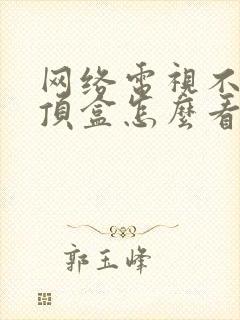 网络電視不
頂盒怎麼看
郭玉峰